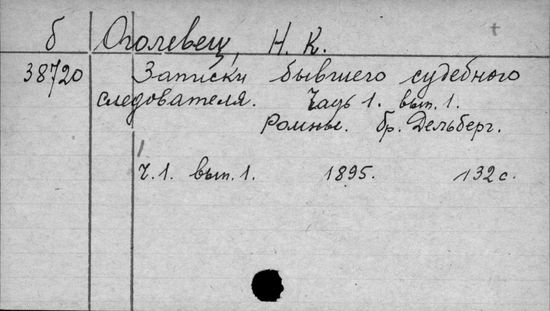 б Оголевец, Н. К.
38720 Записки бывшего судебного
следователя. Чадь 1. вып. 1.
Ромны. бр. Дельберг.
Ч. 1. вып. 1. 1895. 132 с.